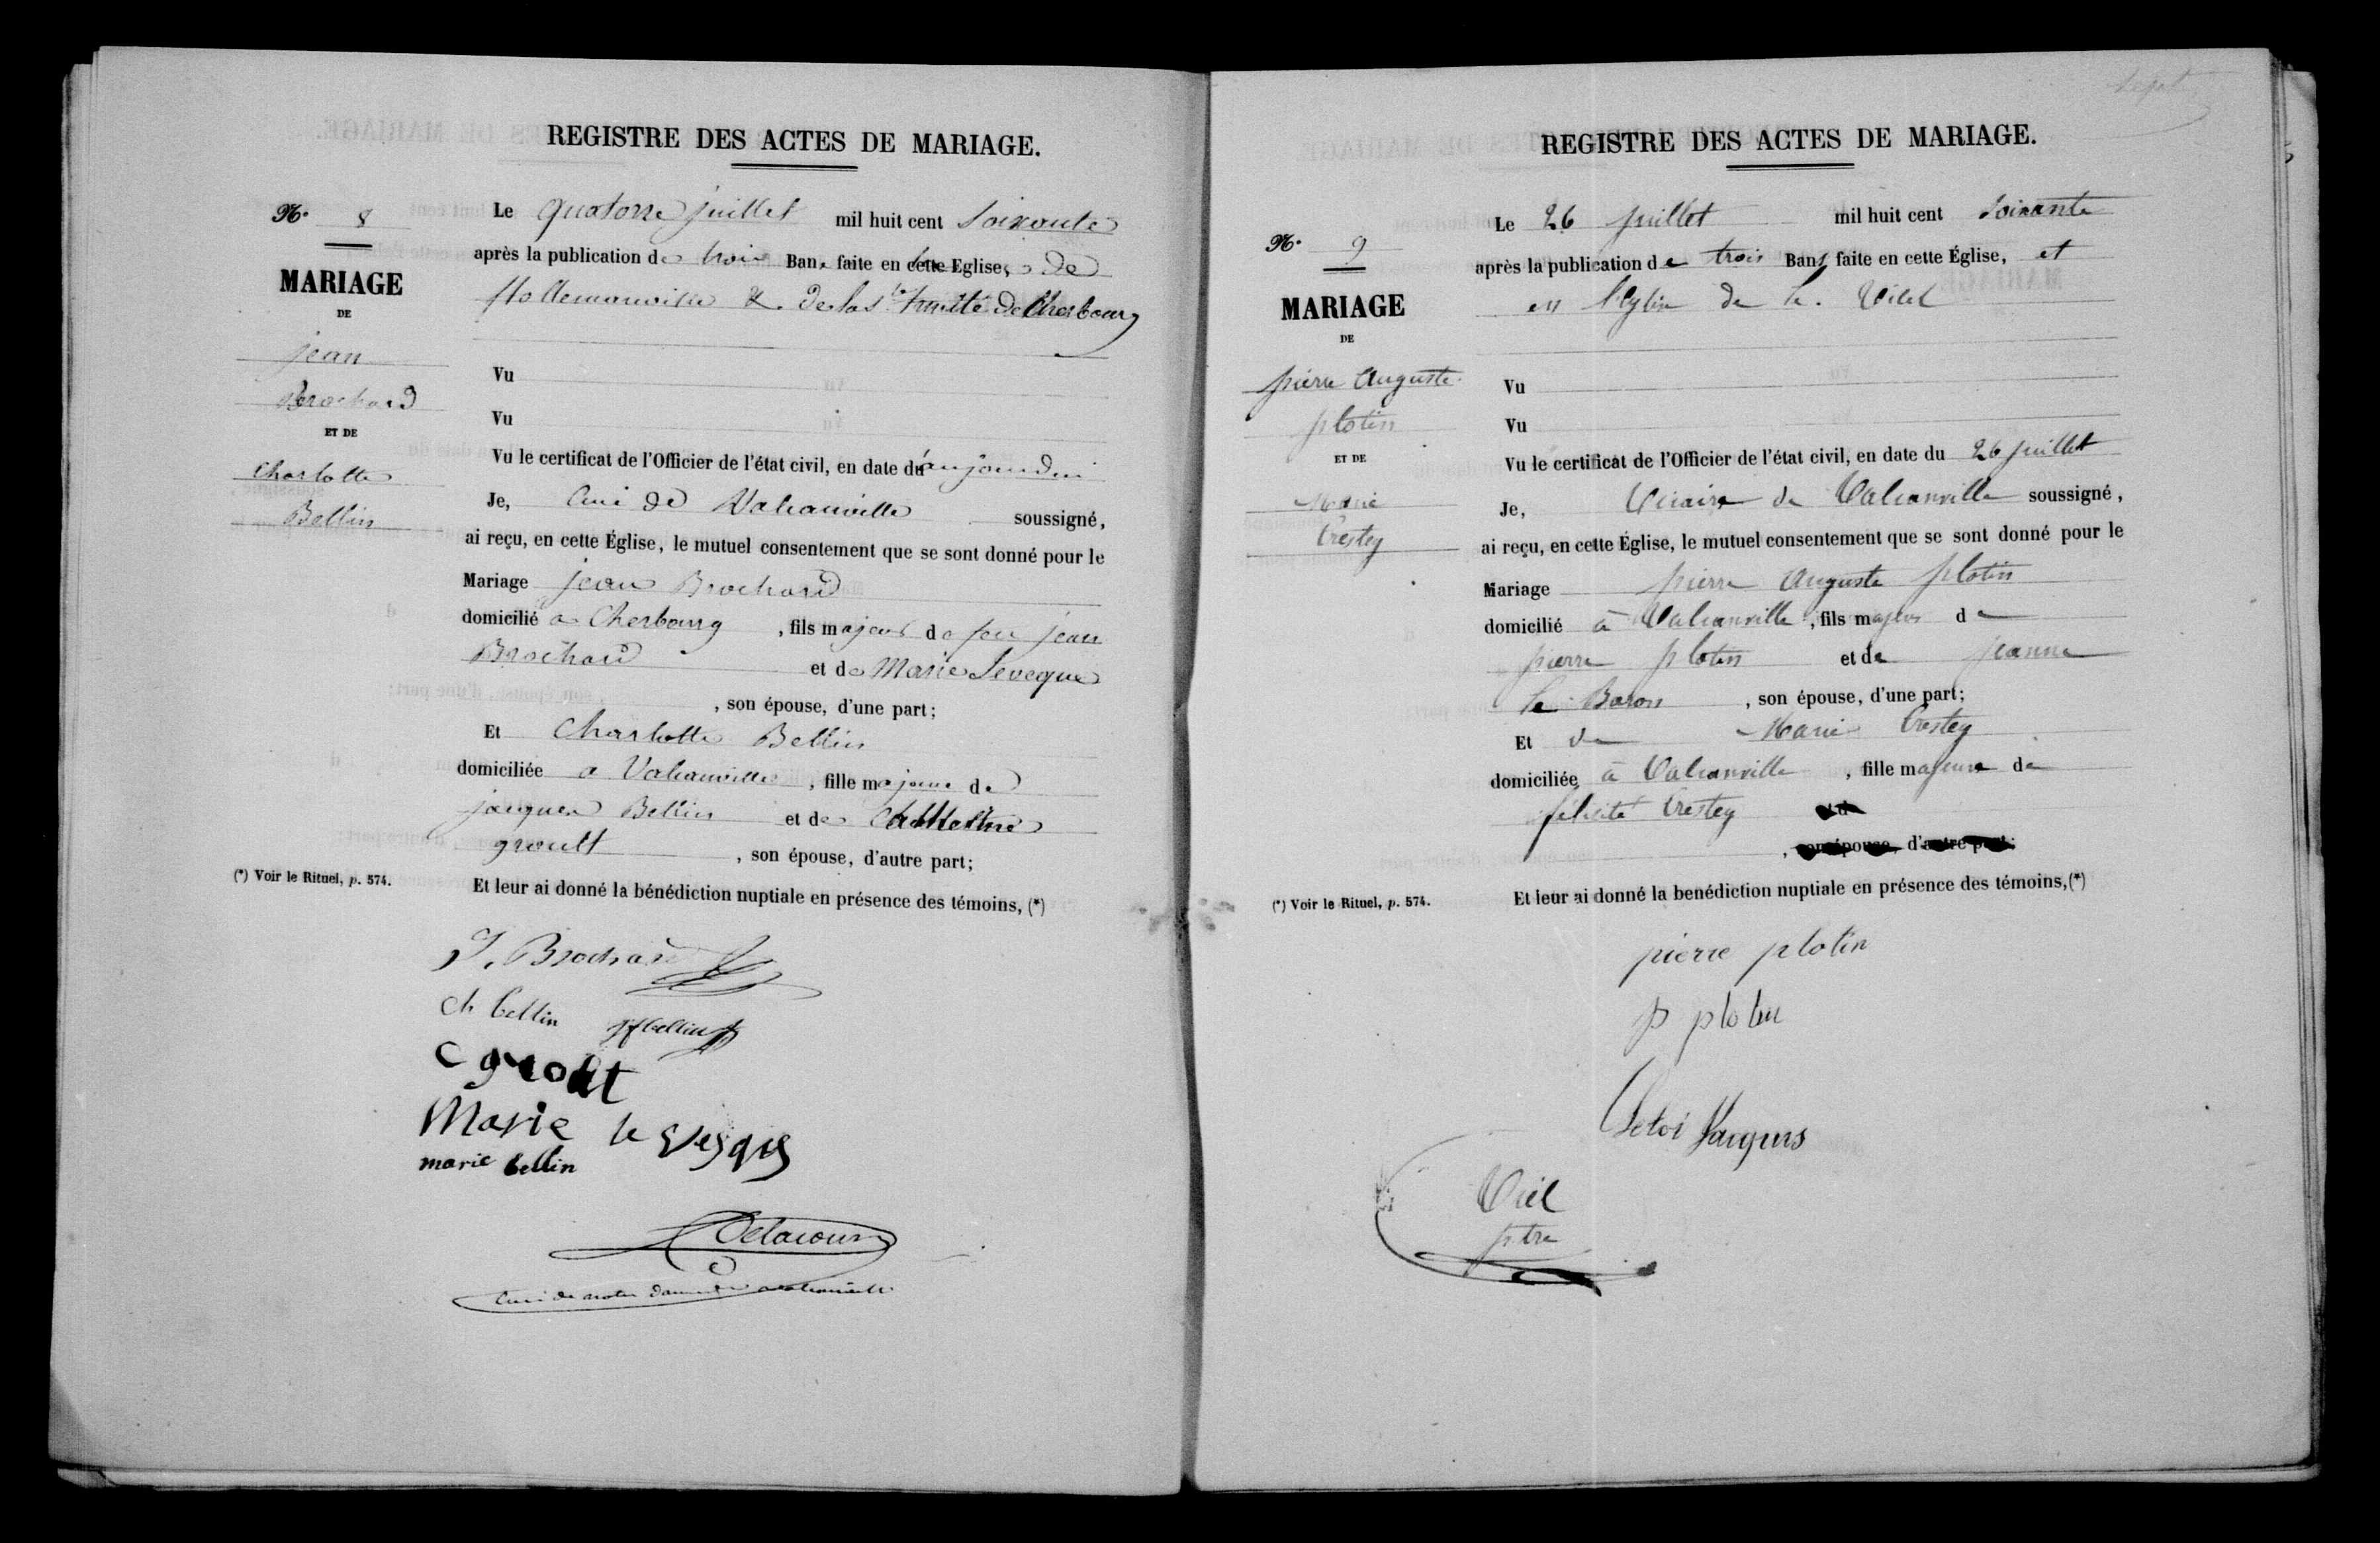 REGISTRE DES ACTES DE MARIAGE.
N° 8
MARIAGE
DE
jean
Brochard
ET DE
Charlotte
Bellin
(*) Voir le Rituel, p. 574.
Le quatorze juillet mil huit cent soixante
après la publication de trois Bans faite en cette Eglise, de
& de la Ste trinité de Cherbourg
Vu
Vu
Vu le certificat de l'Officier de l'état civil, en date du aujourdui
Je, Curé de Valcanville soussigné,
ai reçu, en cette Église, le mutuel consentement que se sont donné pour le
Mariage jean Brochard
domicilié a Cherbourg , fils majeur de feu jean
Brochard et de Marie Leveque
, son épouse, d'une part;
Et Charlotte Bellin
domiciliée a Valcanville , fille majeure de
jacques Bellin et de Catherine
groult , son épouse, d'autre part;
Et leur ai donné la bénédiction nuptiale en présence des témoins, (*)
J. Brochard
ch bellin jfbellin
c groult
Marie le vesque
marie bellin
Delacour
Curé de notre dame de valcanville
REGISTRE DES ACTES DE MARIAGE.
N° 9
MARIAGE
DE
pierre Auguste
plotin
ET DE
Marie
Crestey
(*) Voir le Rituel, p. 574.
Le 26 juillet mil huit cent soixante
après la publication de trois Bans faite en cette Église, et
en l'Eglise de
Vu
Vu
Vu le certificat de l'Officier de l'état civil, en date du 26 juillet
Je, Vicaire de Valcanville soussigné,
ai reçu, en cette Église, le mutuel consentement que se sont donné pour le
Mariage pierre Auguste plotin
domicilié à Valcanville , fils majeur de
pierre plotin et de jeanne
le Baron , son épouse, d'une part;
Et de Marie Crestey
domiciliée à Valcanville , fille majeure de
félicité Crestey et d
, son épouse, d'autre part;
Et leur ai donné la benédiction nuptiale en présence des témoins,(*)
pierre plotin
p plotin
Jacques
Viel
ptre